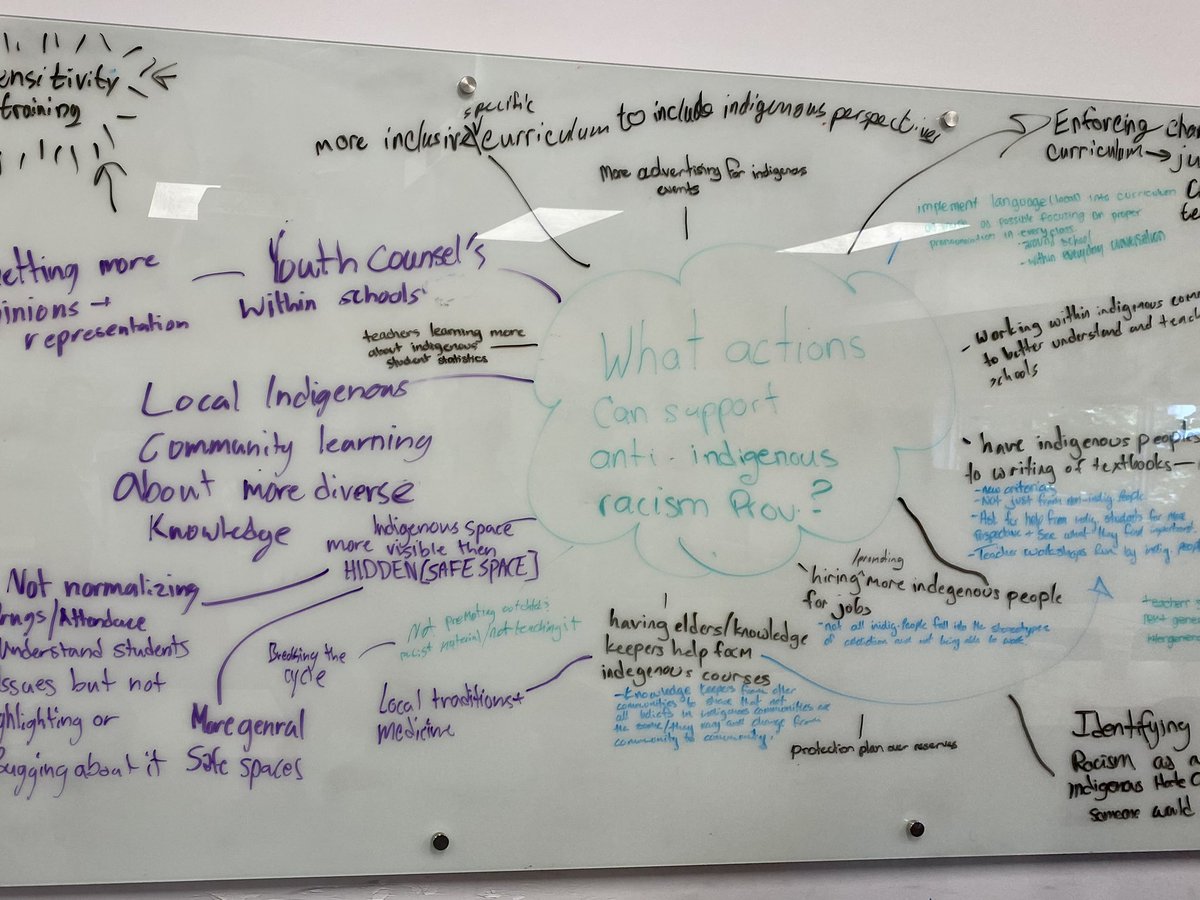 ensitivity
training
more inclusive specific curriculum to include indigenous perspectives
More advertising for indigenous
events
Enforcing
curriculum →
implement language (local) into curriculum
as much as possible focusing on proper
pronounciation in every class
- around school
- within everyday conversation
Youth Counsel's
Within schools
etting more
inions +
representation
teachers learning more
about indigenous
student statistics
What actions
Can support
anti-indigenous
racism Prov.?
- Working within indigenous
to better understand and teach
schools
Local Indigenous
Community learning
About more diverse
Knowledge
have indigenous peoples
to writing of textbooks —
- new criteria
- Not just from non-indig. People
- Ask for help from indig. students for more
Perspective + See what they find important
- Teacher workshops run by indig.
Indigenous space
more visible then
HIDDEN [SAFE SPACE]
Not normalizing
rugs/Attendance
Understand students
issues but not
ghlighting or
bugging about it
More genral
Safe spaces
Breaking the
cycle
Not promoting outdated
racist material/not teaching it
Local traditions +
medicine
having elders/knowledge
keepers help form
indegenous courses
- Knowledge keepers from other
communities to share that not
all beliefs in indigenous communities are
the same/they vary and change from
community to community.
"hiring /promoting" more indegenous people
for jobs
- not all indig. People fall into the stereotypes
of addiction and not being able to work.
protection plan over reserves
Identifying
Racism as a
Indigenous Hate
someone would